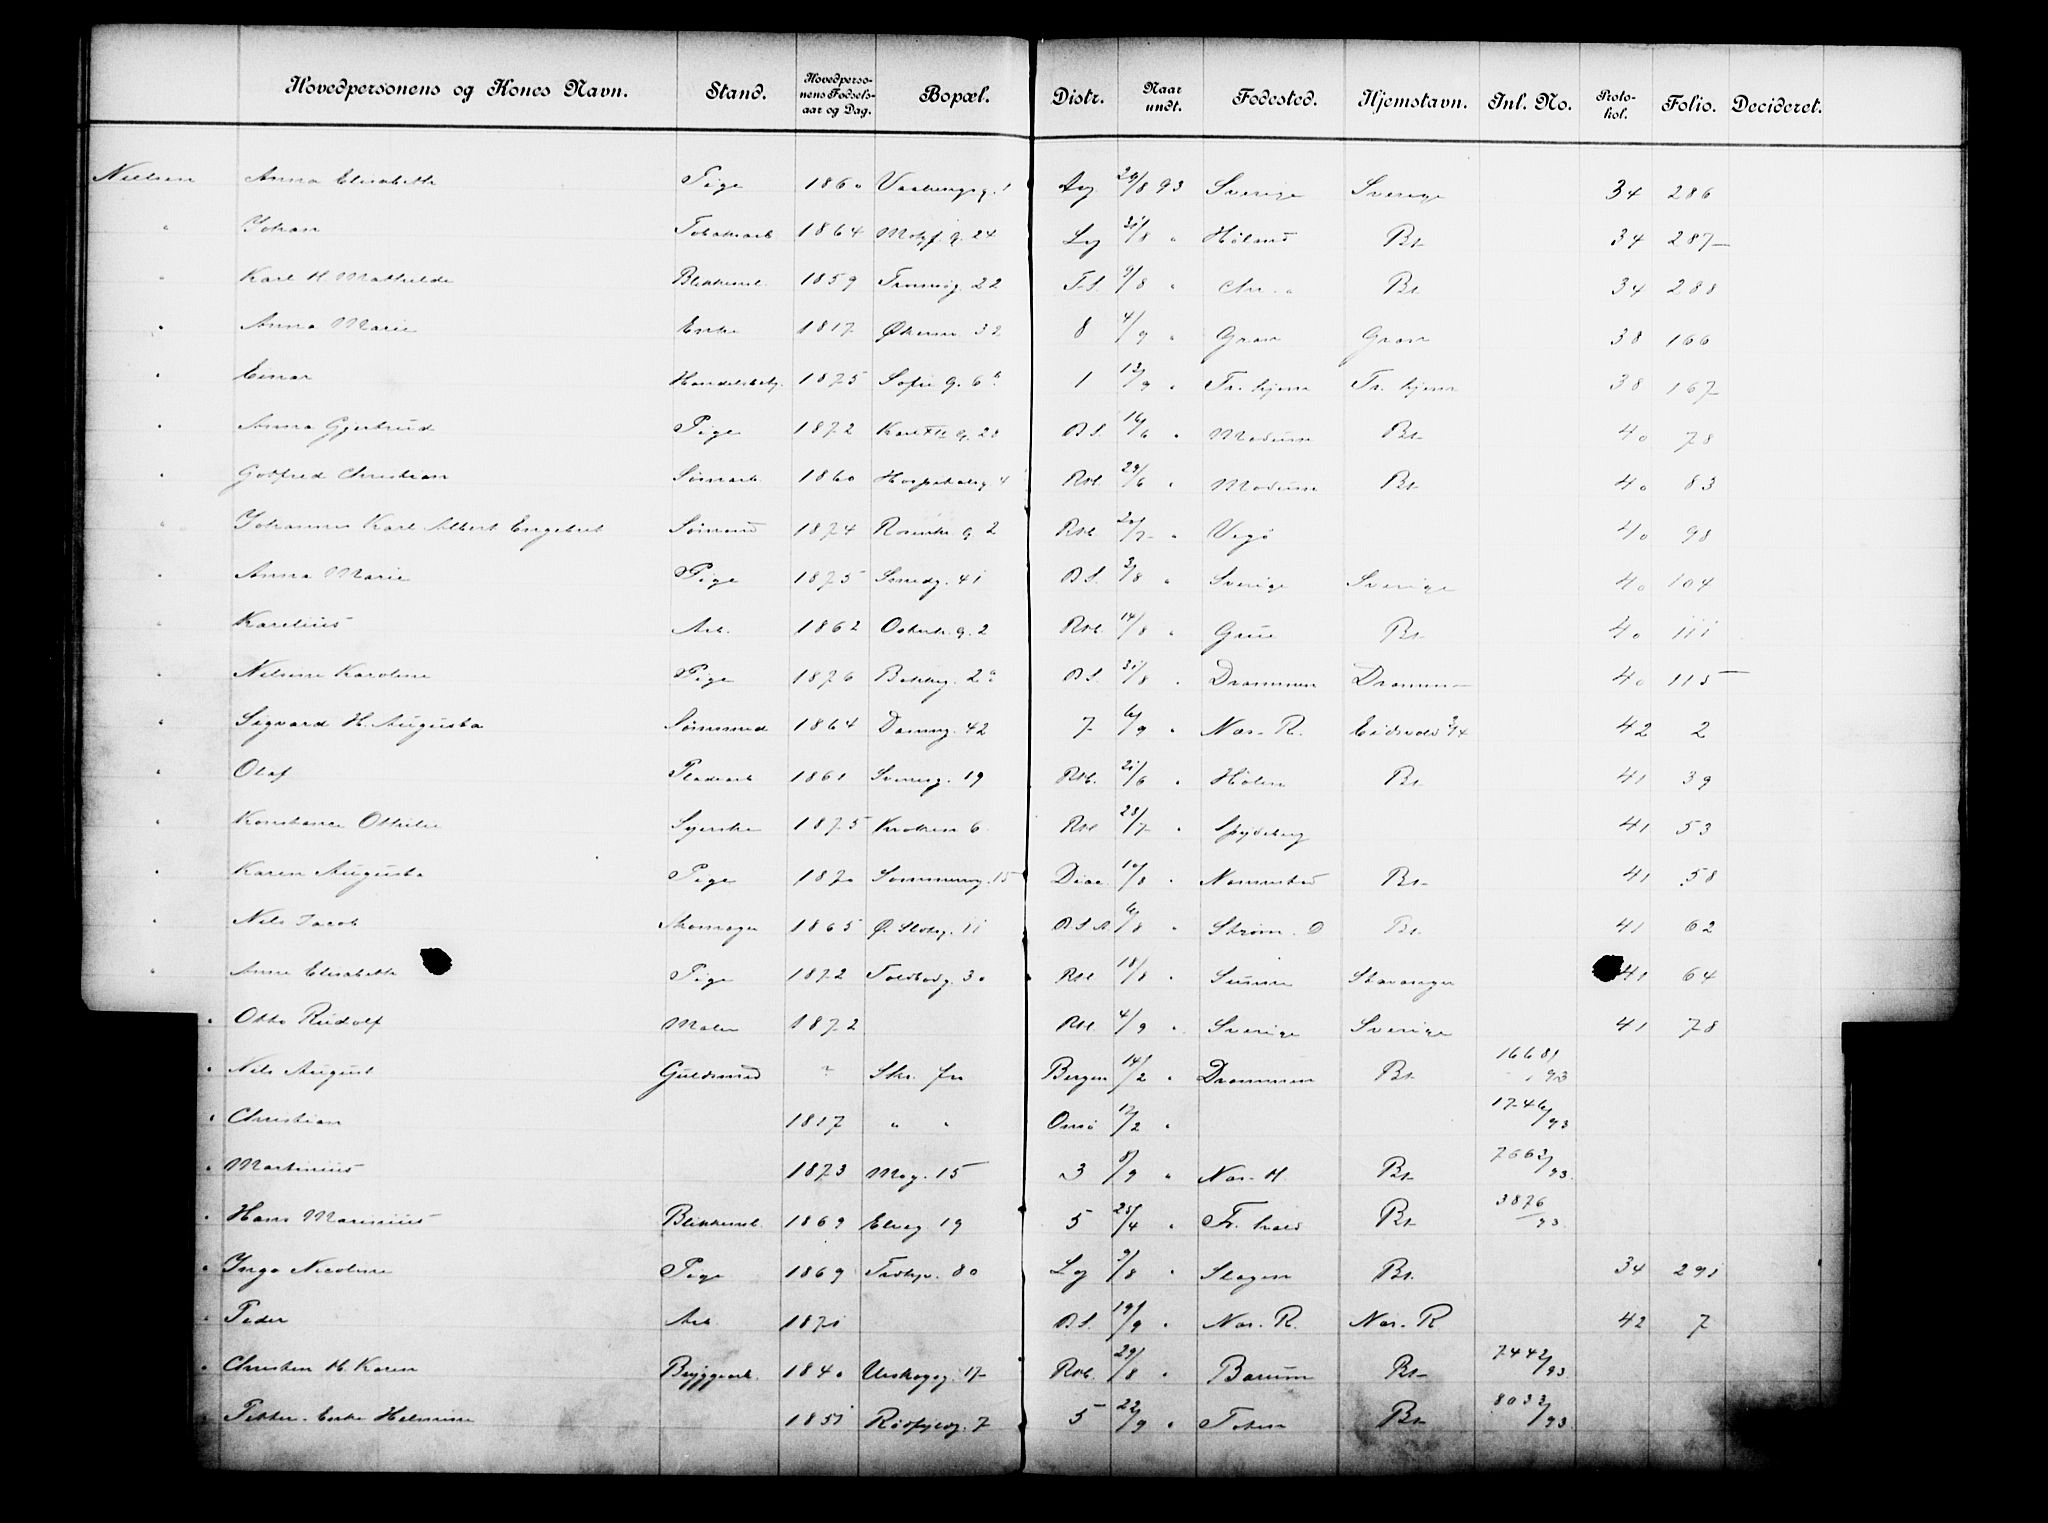 Hovedpersonens og Kones Navn. Stand. Hovedpersonens Fødselsaar og Dag. Bopæl. Distr. Naar undt. Fødested. Hjemstavn. Inl. No. Protokol. Folio. Decideret.
Nielsen Anna Elisabeth Pige 1860 1 29/8 93 Sverige Sverige 34 286
" Johan Tobakarb 1864 24 Lg 21/8 " Høland Bt 34 287
" Karl H. Mathilde Blikkensl. 1859 Tromsøg. 22 9/8 " Bt 34 288
" Anna Marie Enke 1817 Økern 32 8 4/9 " Gran Gran 38 166
" Einar Handelsbetj. 1875 Sofie g. 6 1 12/9 " Tr. hjem Tr. hjem 38 167
" Anna Gjertrud Pige 1872 Karl XII g. 28 B.S. 16/6 " Modum Bt 40 78
" Gotfred Christian 1860 Hospitalsg 4 Rst. 29/6 " Modum Bt 40 83
" Johannes Karl Albert Engebret Sømand 1874 Rosenkr. g. 2 Rst. 20/7 " Vegø 40 98
" Anna Marie Pige 1875 Smedg. 41 B.S. 3/8 " Sverige Sverige 40 104
" Karelius Arb. 1862 g. 2 Rst. 14/8 " Grue Bt 40 111
" Nielsine Karoline Pige 1876 Bakkeg. 2 B.S. 31/8 " Drammen Drammen 40 115
" Sigvard H. Augusta Sømmand 1864 42 7 6/9 " Næs. R. Eidsvold 42 2
" Olaf Pladsarb 1861 Svenesg. 19 Rst. 21/6 " Hølen Bt 41 39
" Konstance Othilie Syerske 1875 Kroken 6 Rst 28/7 " Spydeberg 41 53
" Karen Augusta Pige 1870 15 10/8 " Nannestad Bt 41 58
" Nils Jacob Skomager 1865 Ø. Slotsg. 11 6/8 " Strøm. O Bt 41 62
" Anne Elisabeth Pige 1872 Toldbodg. 30 Rst 18/8 " Stavanger 41 64
" Otto Rudolf Maler 1872 Rst. 4/9 " Sverige Sverige 41 78
" Nils August Guldsmed ? Bergen 14/2 " Drammen Bt 1668/93
" Christian 1817 " " Onsø 17/2 " 1746/93
" Martinius 1873 Mog. 15 3 8/9 " Næs. H Bt 7662/93
" Hans Marinius Blikkensl. 1869 Elveg 19 5 25/4 " Fr. hald Bt 3876/93
" Inga Nicoline Pige 1869 80 Lg 9/8 " Slagen Bt. 34 291
" Peder Arb 1871 B.S. 19/9 " Næs. R. Næs. R 42 7
" Christen H. Karen Bryggearb. 1840 Urskogsg. 17 Rst. 29/8 " Bærum Bt 7442/93
" Petter. Enke Helmine 1851 Rødfyldg. 7 5 22/9 " Toten Bt 8032/93